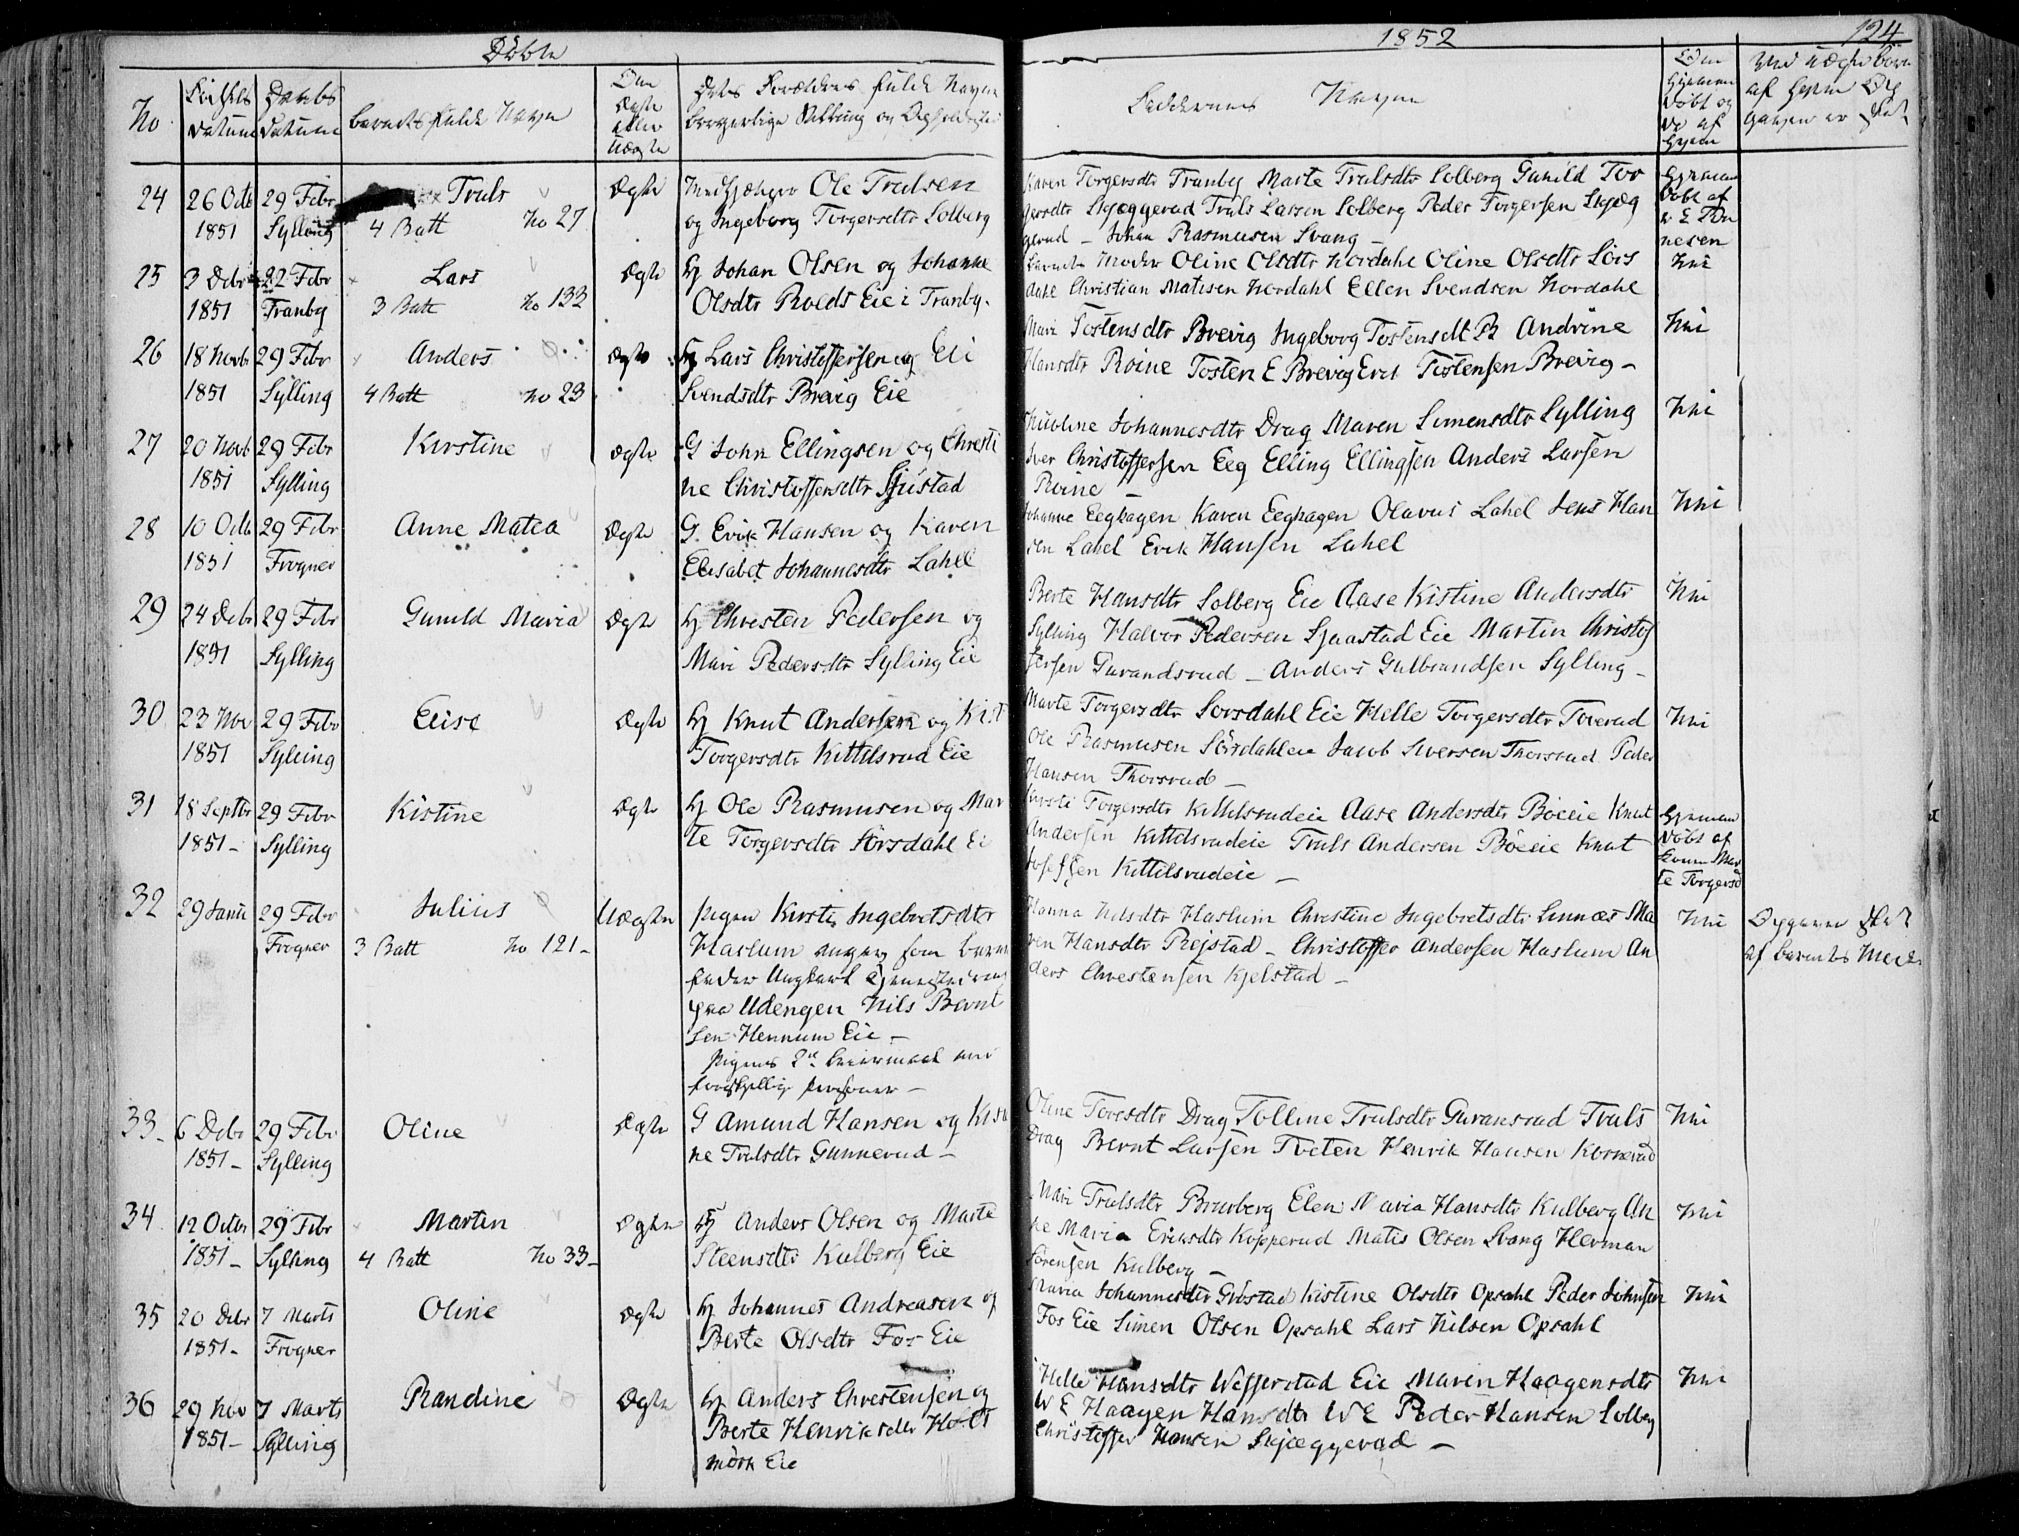 Døbte
1852
124
No
Fødsels Datum
Daabs Datum
Barnets fulde Navn
Om Ægte eller Uægte
Dets Forældres fulde Navne borgerlige Stilling og Opholdssted
Faddernes Navne
Om Hjemmedøbt og da af Hvem
Ved uægte børn af hvem
24 26 Octb 1851 29 Febr Sylling
Truls
4 Batt No 27
Ægte
Ole Trulsen
og Ingeborg Torgersdtr Solberg
Karen Torgersdtr Tranby Marte Trulsdtr Solberg Gunild Tor
gersdtr Skjæggerud Truls Larsen Solberg Peder Torgersen Skjæg
gerud – Johan Rasmusen Svang –
Hjemme
døbt af
E Tøn
nesen
25 3 Debr 1851 22 Febr Tranby
Lars
3 Batt No 133
Ægte
Hj Johan Olsen og Johanne
Olsdtr Roeds Eie i Tranby.
Barnets Moder Oline Olsdtr Nordahl Oline Olsdtr Sørs
dahl Christian Matisen Nordahl Ellen Svendsen Nordahl
Nei
26 18 Novb 1851 29 Febr Sylling
Anders
4 Batt No 23
Ægte
Hj Lars Christoffersen og Eli
Svendsdtr Brevig Eie
Mari Tostensdtr Brevig Ingeborg Tostensdt B Andrine
Hansdtr Roine Tosten E Brevig Erik Tostensen Brevig –
Nei
27 20 Novb 1851 29 Febr Sylling
Kirstine
Ægte
G John Ellingsen og Christi
ne Christoffersdtr Sjustad
Johannesdtr Drag Maren Simensdtr Sylling
Iver Christoffersen Eeg Elling Ellingsen Anders Larsen
Roine –
Nei
28 10 Octb 1851 29 Febr Frogner
Anne Matea
Ægte
G. Erik Hansen og Karen
Elisabet Johannesdtr Lahel
Johanne Eeghagen Karen Eeghagen Olavus Lahel Jens Han
sen Lahel Erik Hansen Lahel
Nei
29 24 Debr 1851 29 Febr Sylling
Gunild Maria
Ægte
Hj Christen Pedersen og
Mari Pedersdtr Sylling Eie
Berte Hansdtr Solberg Eie Aase Kistine Andersdtr
Sylling Halvor Pedersen Sjaastad Eie Martin Christof
fersen Gurandsrud – Anders Gulbrandsen Sylling –
Nei
30 23 Nov 1851 29 Febr Sylling
Elise
Ægte
Hj Knut Andersen og Kist
Torgersdtr Kittilsrud Eie
Marte Torgersdtr Sørsdahl Eie Helle Torgersdtr Toverud
Ole Rasmusen Sørsdahleie Jacob Siversen Thorsrud Peder
Hansen Thorsrud –
Nei
31 18 Septbr 1851 – 29 Febr Sylling
Kistine
Ægte
Hj Ole Rasmusen og Mar
te Torgersdtr Sørsdahl Ei
Kirsti Torgersdtr Kittilsrudeie Aase Andersdtr Böeeie Knut
Andersen Kittilsrudeie Truls Andersen Böeeie Knut
Josefsen Kittilsrudeie –
Hjemme
døbt af
Mar
te Torgersd
32 29 Janu 29 Febr Frogner
Julius
3 Batt No 121 –
Uægte
Pigen Kirsti Ingebretsdtr
Haslum angiv som barne
fader Ungkarl
fra Udengen Nils Bernt
sen Hennum Eie –
Pigens 2det Leiermaal med
forskjellige Personer –
Hanna Nilsdtr Haslum Christine Ingebretsdtr Linnæs Ma
ren Hansdtr Rejstad – Christoffer Andersen Haslum An
ders Christensen Kjelstad –
Nei
af barnets Moder
33 – 6 Debr 1851 – 29 Febr Sylling
Oline
Ægte
G Amund Hansen og Kisti
ne Trulsdtr Gunnerud –
Oline Toresdtr Drag Tolline Trulsdtr Guransrud Truls
Drag Bernt Larsen Tveten Henrik Hansen Kornerud
Nei
34 12 Octbr 1851 – 29 Febr Sylling
Martin
4 Batt No 33 –
Ægte
Hj Anders Olsen og Marte
Steensdtr Kulberg Eie
Mari Trulsdtr Bruaberg Elen Maria Hansdtr Kulberg An
ne Maria Eriksdtr Kopperud Matis Olsen Svang Herman
Sørensen Kulberg –
Nei
35 20 Debr 1851 – 7 Marts Frogner
Oline
Ægte
Hj Johannes Andreasen og
Berte Olsdtr Fos Eie
Maria Johannesdtr Gröstad Kistine Olsdtr Opsahl Peder Johnsen
Fos Eie Simen Olsen Opsahl Lars Nilsen Opsahl
Nei
36 29 Nov 1851 – 7 Marts Sylling
Randine
Ægte
Hj Anders Christensen og
Berte Henriksdtr Holt
mörk Eie
Helle Hansdtr Wefferstad Eie Maren Haagensdtr
W E Haagen Hansdtr W E Peder Hansen Solberg
Christoffer Hansen Skjæggerud –
Nei